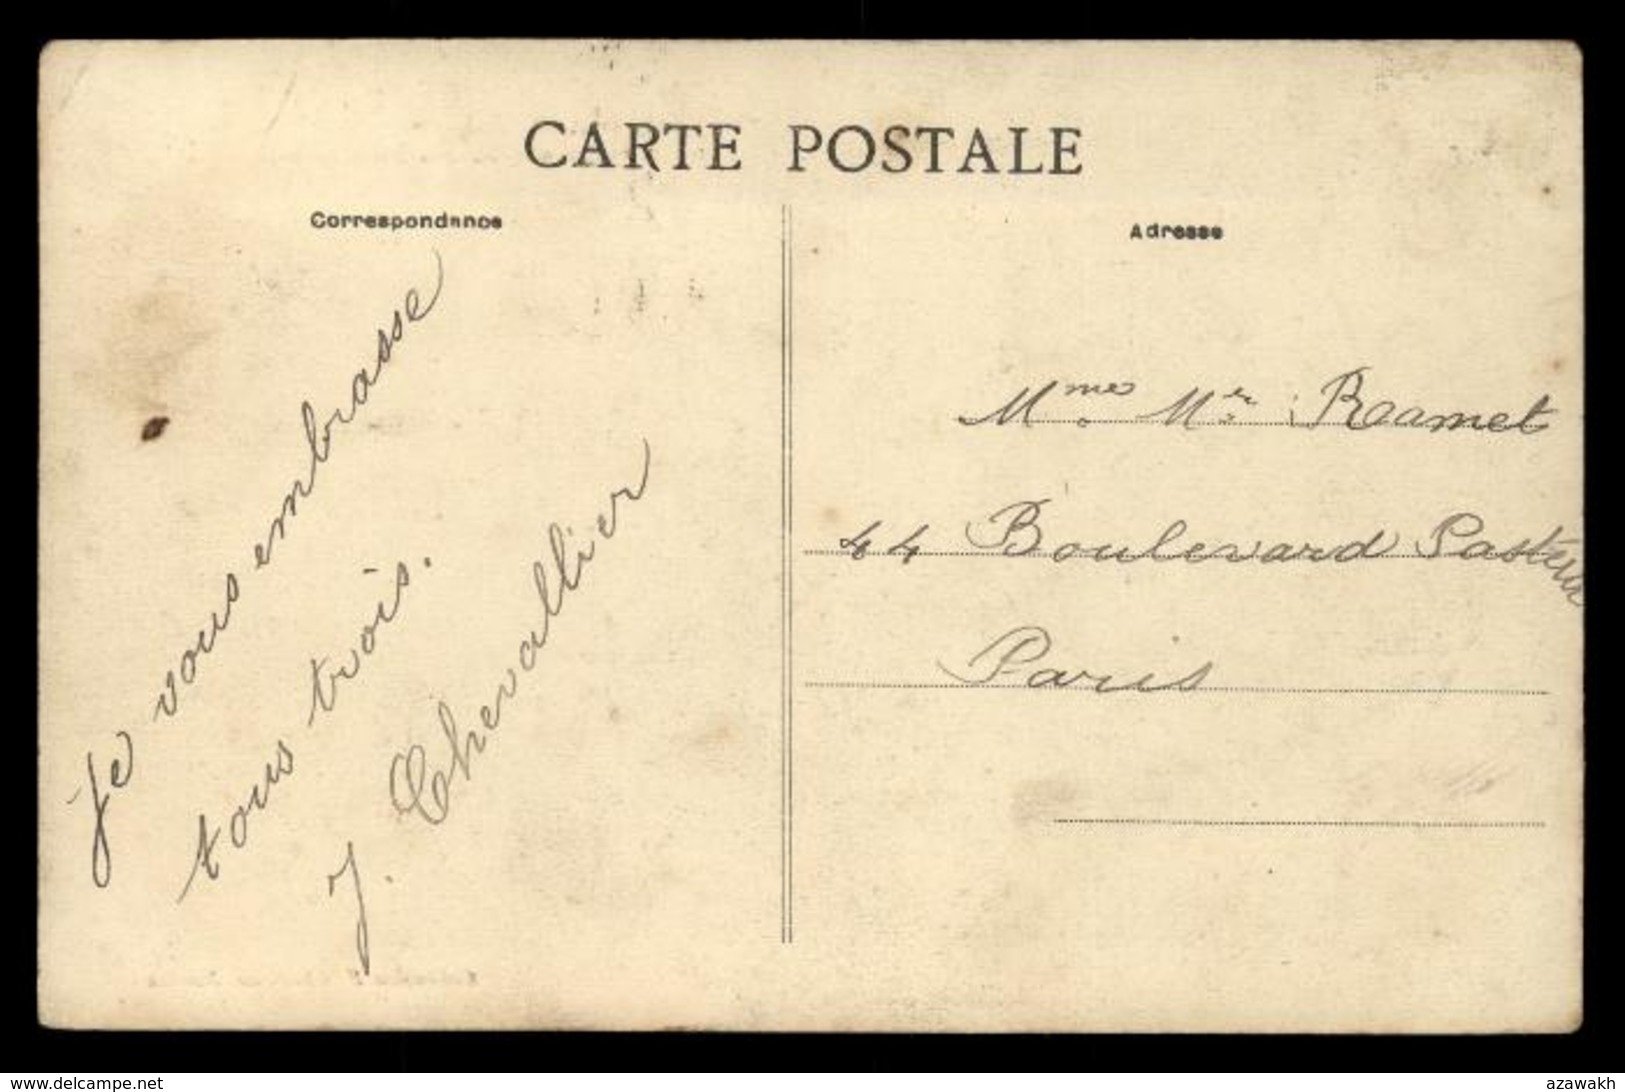 CARTE POSTALE
Correspondance
Adresse
Je vous embrasse
tous trois.
J. Chevallier
Mme Mr Ramet
44 Boulevard Pasteur
Paris
www.delcampe.net
azawakh